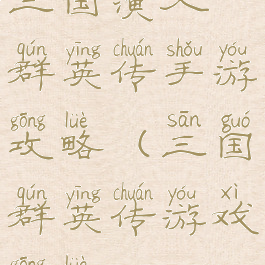 三国演义
qún yīng chuán shǒu yóu
群英传手游
gōng lüè sān guó
攻略（三国
qún yīng chuán yóu xì
群英传游戏
gōng lüè